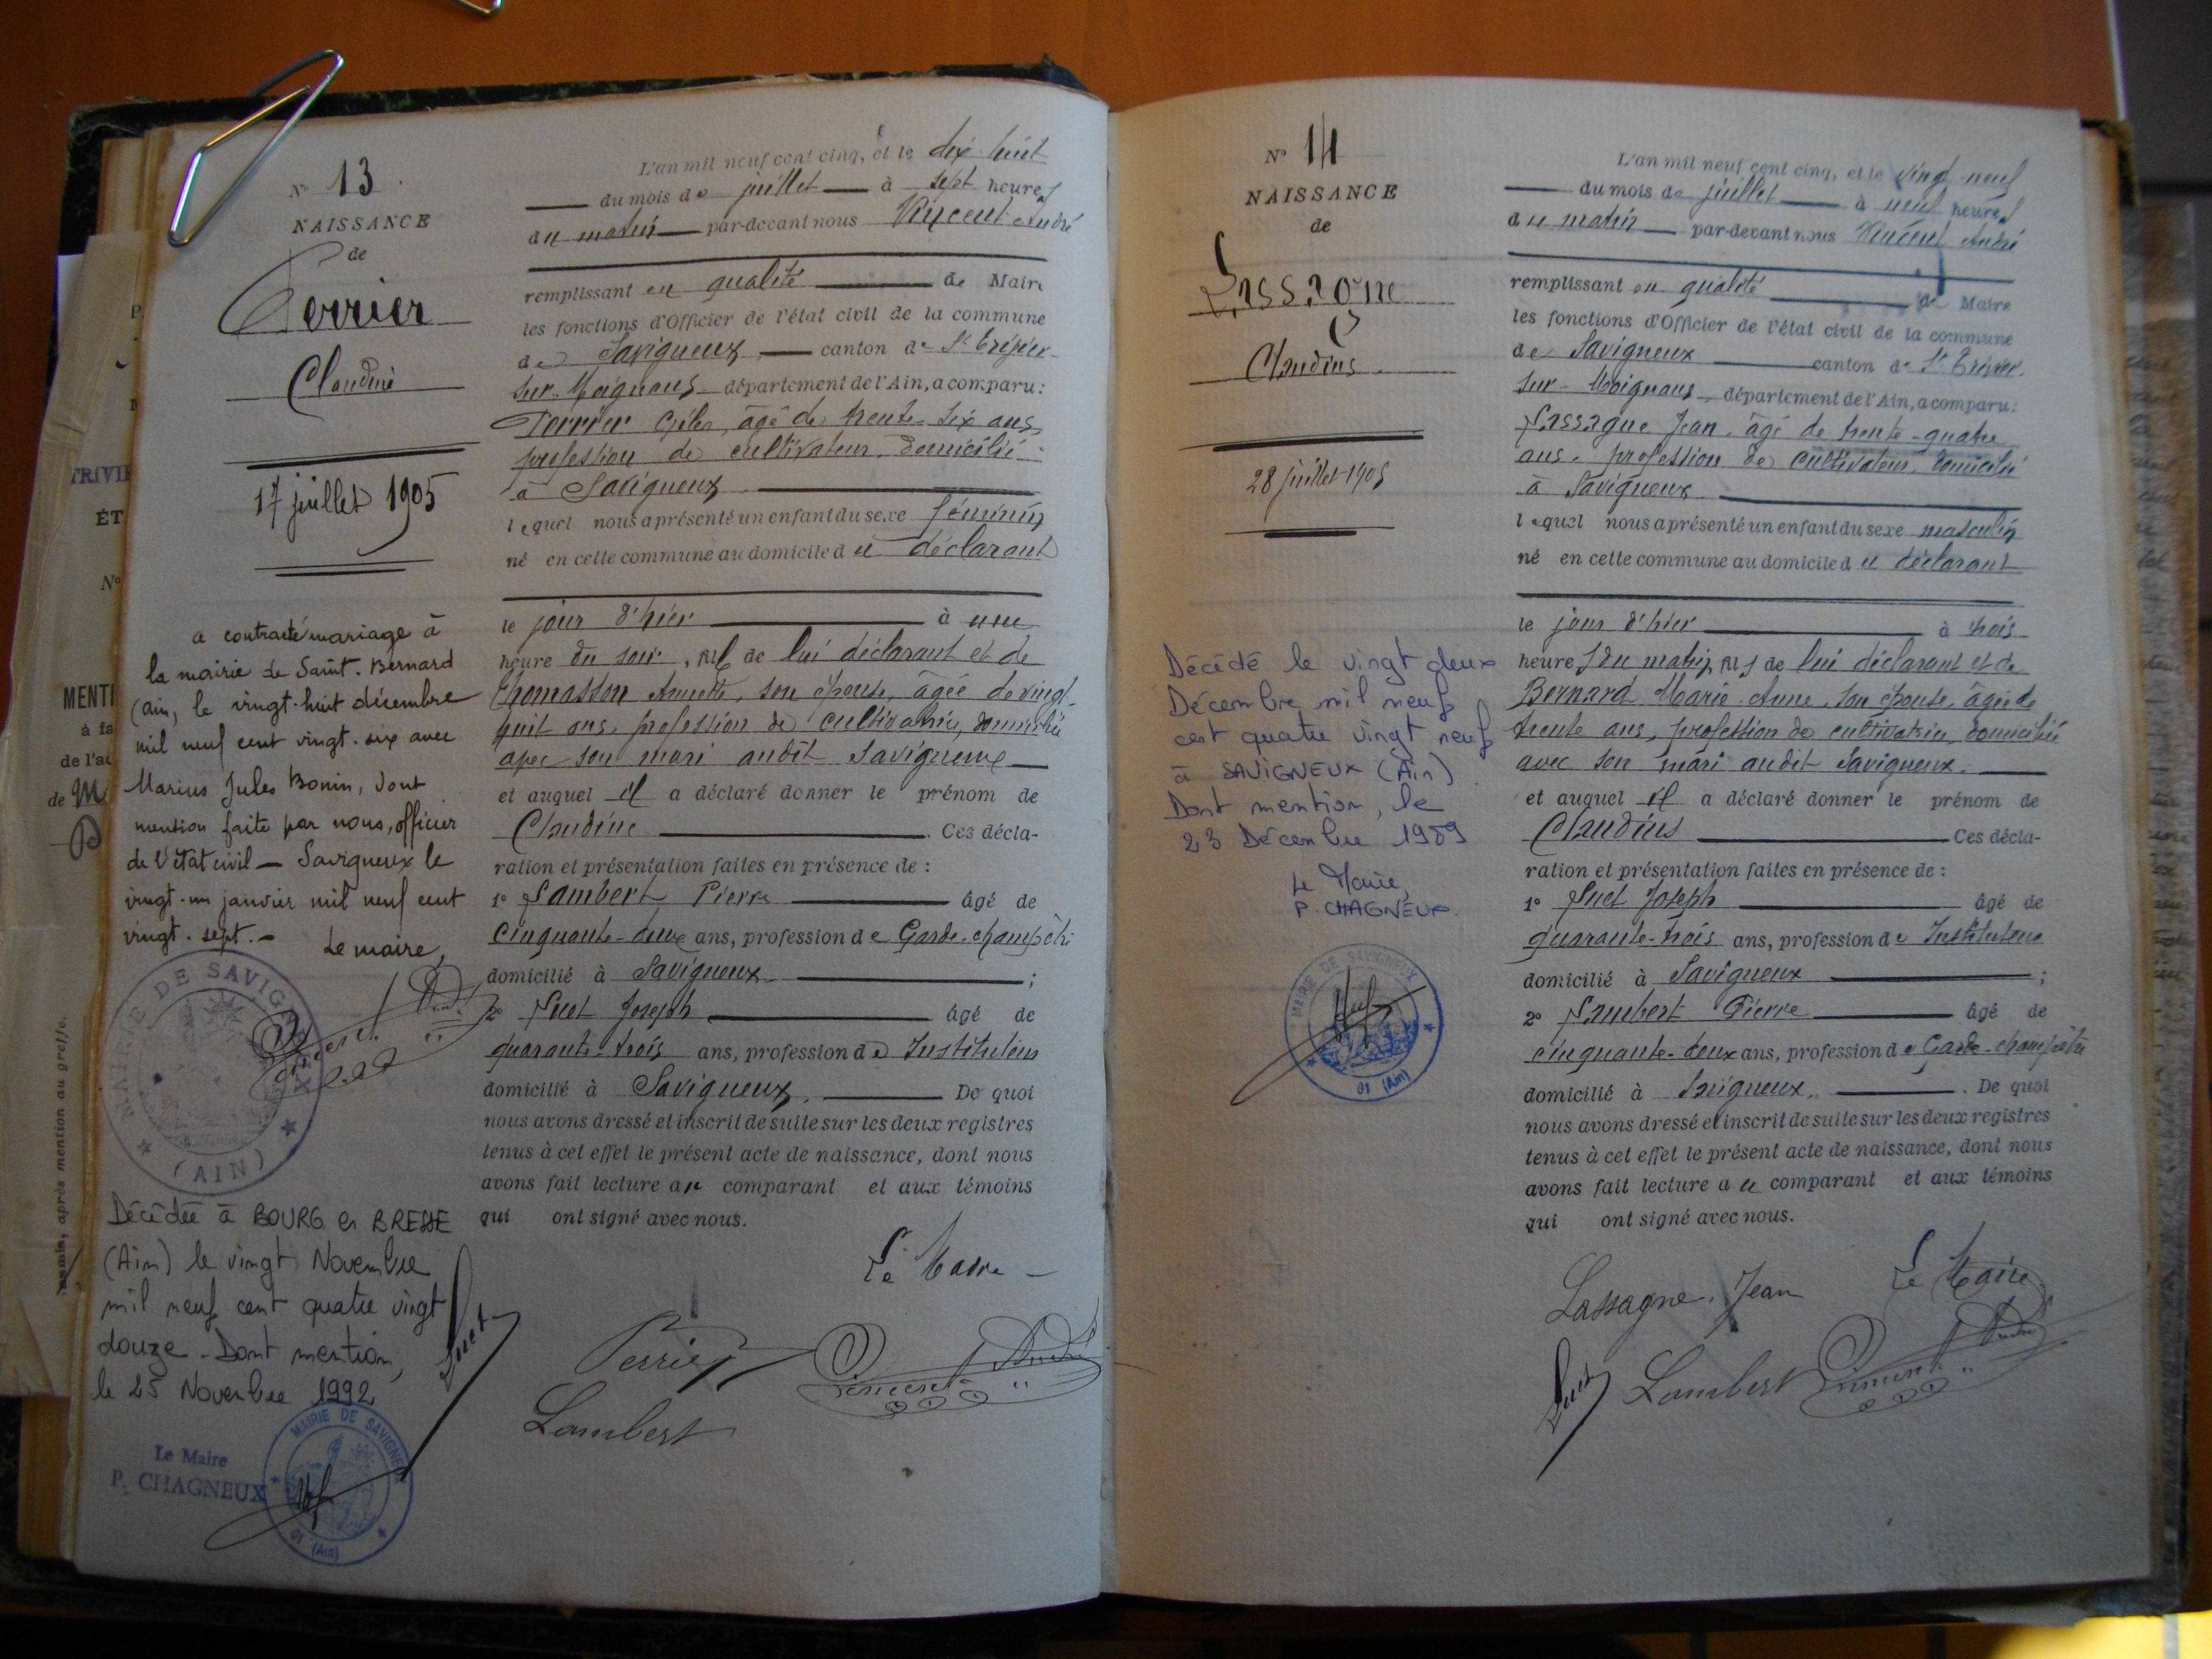 N° 13
NAISSANCE
de
Perrier
Claudine
17 juillet 1905
a contracté mariage à
la mairie de Saint-Bernard
(ain, le vingt-huit décembre
mil neuf cent vingt-six avec
Marius Jules Bonin, dont
mention faite par nous, officier
de l'état civil — Savigneux le
vingt-un janvier mil neuf cent
vingt-sept.-
Le maire,
MAIRIE DE SAVIGNEUX
(AIN)
Décédée à BOURG en BRESSE
(Ain) le vingt Novembre
mil neuf cent quatre vingt
douze - Dont mention,
le 25 Novembre 1992
Le Maire
P. CHAGNEUX
MAIRIE DE SAVIGNEUX
01 (Ain)
L'an mil neuf cent cinq, et le dix huit
du mois de juillet à sept heures
du matin par-devant nous Vincent André
remplissant en qualité de Maire
les fonctions d'Officier de l'état civil de la commune
de Savigneux canton de St Trivier-
sur-Moignans département de l'Ain, a comparu:
Perrier âgé de trente-six ans,
profession de cultivateur, domicilié
à Savigneux
lequel nous a présenté un enfant du sexe féminin
né en cette commune au domicile du déclarant
le jour d'hier à une
heure du soir, fils de lui déclarant et de
Thomasson Annette, son épouse, âgée de vingt-
huit ans, profession de cultivatrice, domiciliée
avec son mari audit Savigneux
et auquel il a déclaré donner le prénom de
Claudine . Ces décla-
ration et présentation faites en présence de :
1° Lambert Pierre âgé de
cinquante-deux ans, profession de Garde-champêtre
domicilié à Savigneux ;
2° Suet Joseph âgé de
quarante-trois ans, profession de Instituteur
domicilié à Savigneux. De quoi
nous avons dressé et inscrit de suite sur les deux registres
tenus à cet effet le présent acte de naissance, dont nous
avons fait lecture au comparant et aux témoins
qui ont signé avec nous.
Le Maire
Suet
Perrier
Vincent André
Lambert
N° 14
NAISSANCE
de
Lassagne
Claudius
28 juillet 1905
Décédé le vingt deux
Décembre mil neuf
cent quatre vingt neuf
à SAVIGNEUX (Ain)
Dont mention, le
23 Décembre 1989
Le Maire,
P. CHAGNEUX.
MAIRIE DE SAVIGNEUX
01 (Ain)
L'an mil neuf cent cinq, et le vingt-neuf
du mois de juillet à neuf heures
du matin par-devant nous Vincent André
remplissant en qualité de Maire
les fonctions d'Officier de l'état civil de la commune
de Savigneux canton de St Trivier-
sur-Moignans département de l'Ain, a comparu:
Lassagne Jean, âgé de trente-quatre
ans, profession de cultivateur, domicilié
à Savigneux
lequel nous a présenté un enfant du sexe masculin
né en cette commune au domicile du déclarant
le jour d'hier à trois
heures du matin, fils de lui déclarant et de
Bernard Marie-Anne, son épouse, âgée de
trente ans, profession de cultivatrice, domiciliée
avec son mari audit Savigneux.
et auquel il a déclaré donner le prénom de
Claudius Ces décla-
ration et présentation faites en présence de :
1° Suet Joseph âgé de
quarante-trois ans, profession de Instituteur
domicilié à Savigneux ;
2° Lambert Pierre âgé de
cinquante-deux ans, profession de Garde-champêtre
domicilié à Savigneux. . De quoi
nous avons dressé et inscrit de suite sur les deux registres
tenus à cet effet le présent acte de naissance, dont nous
avons fait lecture au comparant et aux témoins
qui ont signé avec nous.
Lassagne Jean
Le Maire
Suet
Lambert
Vincent André